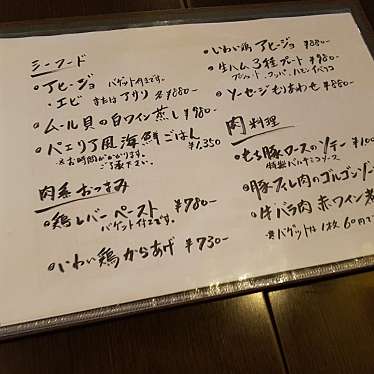 シーフード
・アヒージョ バゲット付きです。
・エビ または アサリ 各¥880-
・ムール貝の白ワイン蒸し ¥980-
・パエリア風海鮮ごはん ¥1,350
※お時間がかかります。
ご了承下さい。
肉系おつまみ
・鶏レバーペースト ¥780-
バゲット付きです。
・いわい鶏からあげ ¥730-
・いわい鶏 アヒージョ ¥880-
・生ハム3種プレート ¥980-
・ソーセージもりあわせ ¥880-
肉料理
・もち豚ロースのソテー ¥100
特製バルサミコソース
・豚フィレ肉のゴルゴンゾー
・牛バラ肉 赤ワイン煮
※バゲットは1枚60円で